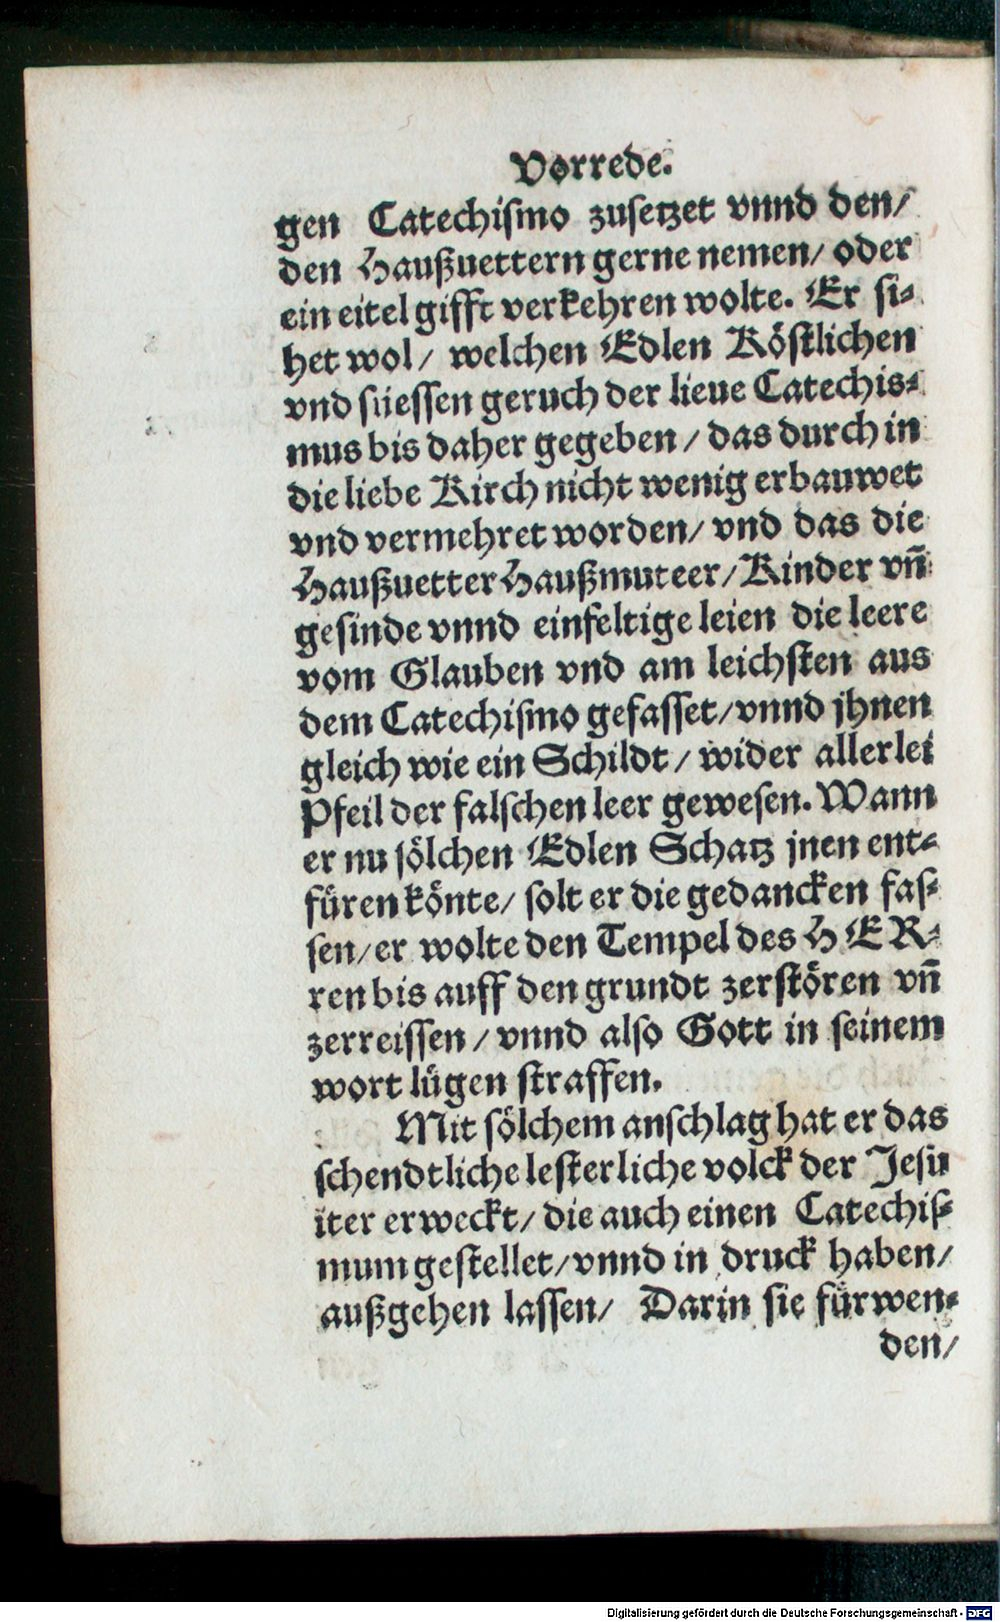 Vorrede.
gen Catechiſmo zuſetzet vnnd den/
den Haußuettern gerne nemen/ oder
ein eitel gifft verkehren wolte. Er ſi⸗
het wol/ welchen Edlen Köſtlichen
vnd ſüeſſen geruch der lieue Catechis⸗
mus bis daher gegeben/ das durch in
die liebe Kirch nicht wenig erbauwet
vnd vermehret worden/ vnd das die
Haußuetter Haußmuteer/ Kinder vñ
geſinde vnnd einfeltige leien die leere
vom Glauben vnd am leichſten aus
dem Catechiſmo gefaſſet/ vnnd jhnen
gleich wie ein Schildt/ wider allerlei
Pfeil der falſchen leer geweſen. Wann
er nu ſölchen Edlen Schatz jnen ent⸗
füren könte/ ſolt er die gedancken faſ⸗
ſen/ er wolte den Tempel des HER⸗
ren bis auff den grundt zerſtören vñ
zerreiſſen/ vnnd alſo Gott in ſeinem
wort lügen ſtraffen.
Mit ſölchem anſchlag hat er das
ſchendtliche leſterliche volck der Jeſu
iter erweckt/ die auch einen Catechiſ⸗
mum geſtellet/ vnnd in druck haben/
außgehen laſſen/ Darin ſie fürwen⸗
den/
Digitalisierung gefördert durch die Deutsche Forschungsgemeinschaft - DFG